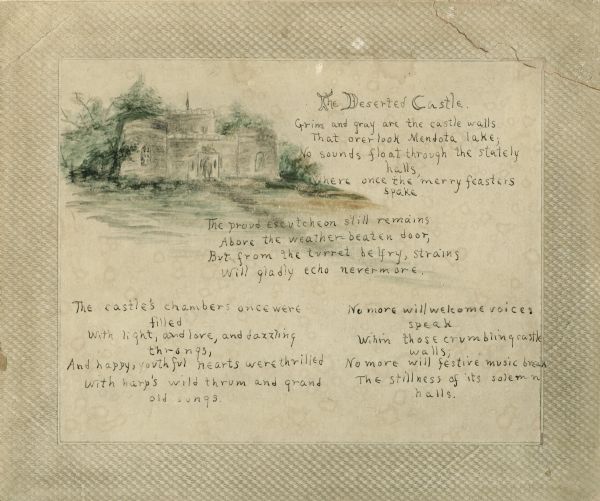 The Deserted Castle.
Grim and gray are the castle walls
That overlook Mendota lake;
No sounds float through the stately
halls,
Where once the merry feasters
spake
The proud escutcheon still remains
Above the weather-beaten door,
But from the turret belfry, strains
Will gladly echo nevermore.
The castle's chambers once were
filled
With light, and love, and dazzling
throngs,
And happy, youthful hearts were thrilled
With harp's wild thrum and grand
old songs.
No more will welcome voices
speak
Within those crumbling castle
walls;
No more will festive music break
The stillness of its solemn
halls.